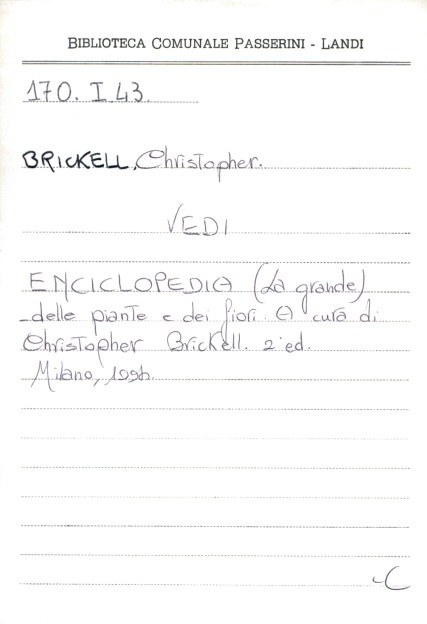 BIBLIOTECA COMUNALE PASSERINI - LANDI
170. I 43.
BRICKELL, Christopher.
VEDI
ENCICLOPEDIA (La grande)
delle piante e dei fiori. A cura di
Christopher Brickell. 2ª ed.
Milano,